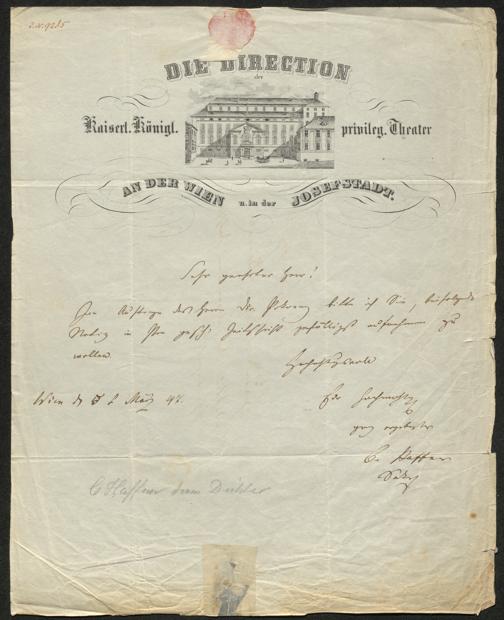 DIE DIRECTION
der
Kaiserl. Königl. privileg. Theater
AN DER WIEN u. in der JOSEFSTADT.
Sehr geehrter Herr!
Im Auftrage des Herrn Dir. Pokorny bitte ich Sie, beifolgende
Notiz in Ihre gesch. Zeitschrift gefälligst aufnehmen zu
wollen.
Hochachtungsvoll
Wien d. 2 März 47.
ganz ergebenster
C. Haffner
C Haffner dem Dichter